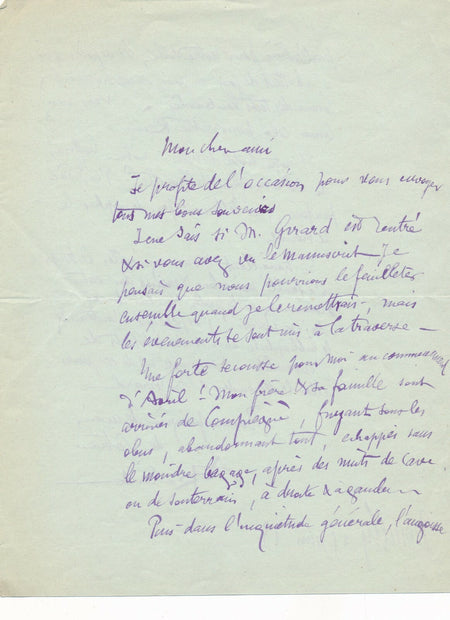 Mon cher ami
Je profite de l'occasion pour vous envoyer
tous mes bons souvenirs
Je ne sais si M. Girard est rentré
& si vous avez vu le manuscrit. Je
pensais que nous pourrions le feuilleter
ensemble quand je le remettrais, mais
les évènements se sont mis à la traverse —
Une forte secousse pour moi au commencement
d'Avril ! Mon frère & sa famille sont
arrivés de Compiègne, fuyant sous les
obus, abandonnant tout, echappés sans
le moindre bagage, après des nuits de cave
ou de souterrain, à droite & à gauche —
Puis dans l'inquiétude générale, l'angoisse